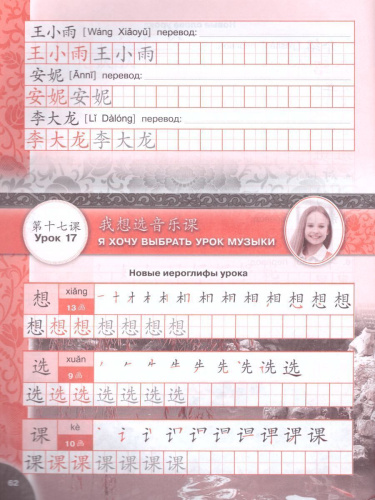 王小雨 [Wáng Xiǎoyǔ] перевод:
王小雨王小雨
安妮 [Ānnī] перевод:
安妮安妮
李大龙 [Lǐ Dàlóng] перевод:
李大龙李大龙
第十七课
Урок 17
我想选音乐课
Я ХОЧУ ВЫБРАТЬ УРОК МУЗЫКИ
Новые иероглифы урока
想 xiǎng
13画
想想想想想想想
选 xuǎn
9画
选选选选选选选
课 kè
10画
课课课课课课课
62